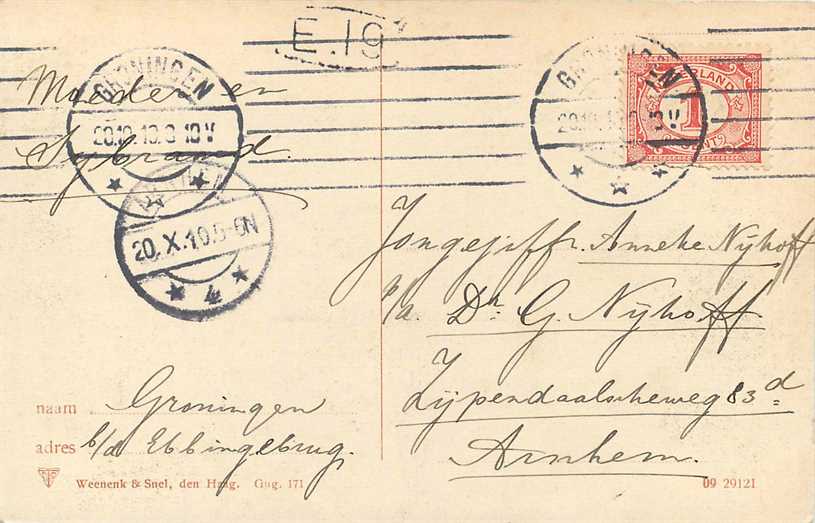 E.19
GRONINGEN
20.10-10.8-10V
GRONINGEN
20.10
NEDERLAND
1
CENT
Moeder en
Sybrand.
20.X.10.5-6N
4
Jongejuffr. Anneke Nijhoff
p/a. Dr. G. Nijhoff
Zijpendaalscheweg 83d
Arnhem.
naam Groningen
adres b/d Ebbingebrug.
Weenenk & Snel, den Haag. Gug. 171
09 29121